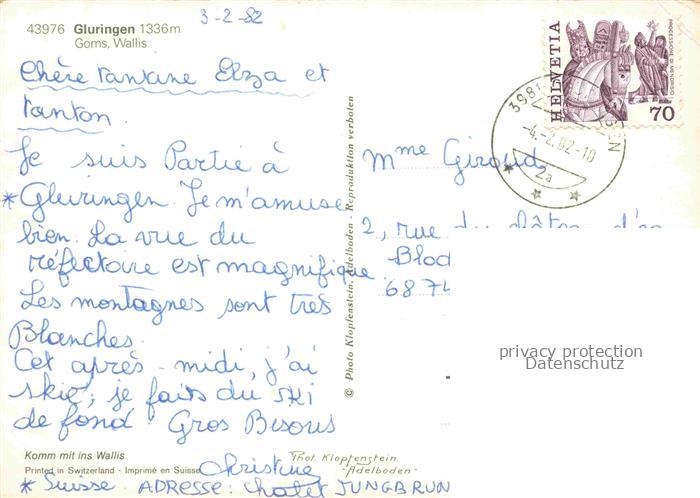 43976 Gluringen 1336m
Goms, Wallis
3-2-82
Chère tantine Elza et
tonton.
Je suis Partie à
* Gluringen. Je m'amuse
bien. La vue du
réfectoire est magnifique
Les montagnes sont très
Blanches.
Cet après-midi, j'ai
skié, je fais du ski
de fond Gros Bisous
Christine
* Suisse. ADRESSE: chalet JUNGBRUN
Komm mit ins Wallis
Printed in Switzerland · Imprimé en Suisse
Phot. Klopfenstein
-Adelboden-
© Photo Klopfenstein, Adelboden - Reproduktion verboten
HELVETIA
PROCESSIONE DI MENDRISIO
70
3981
-4.-2.82-10
2a
Mme Giroud
2, rue du
Blod
6874
privacy protection
Datenschutz